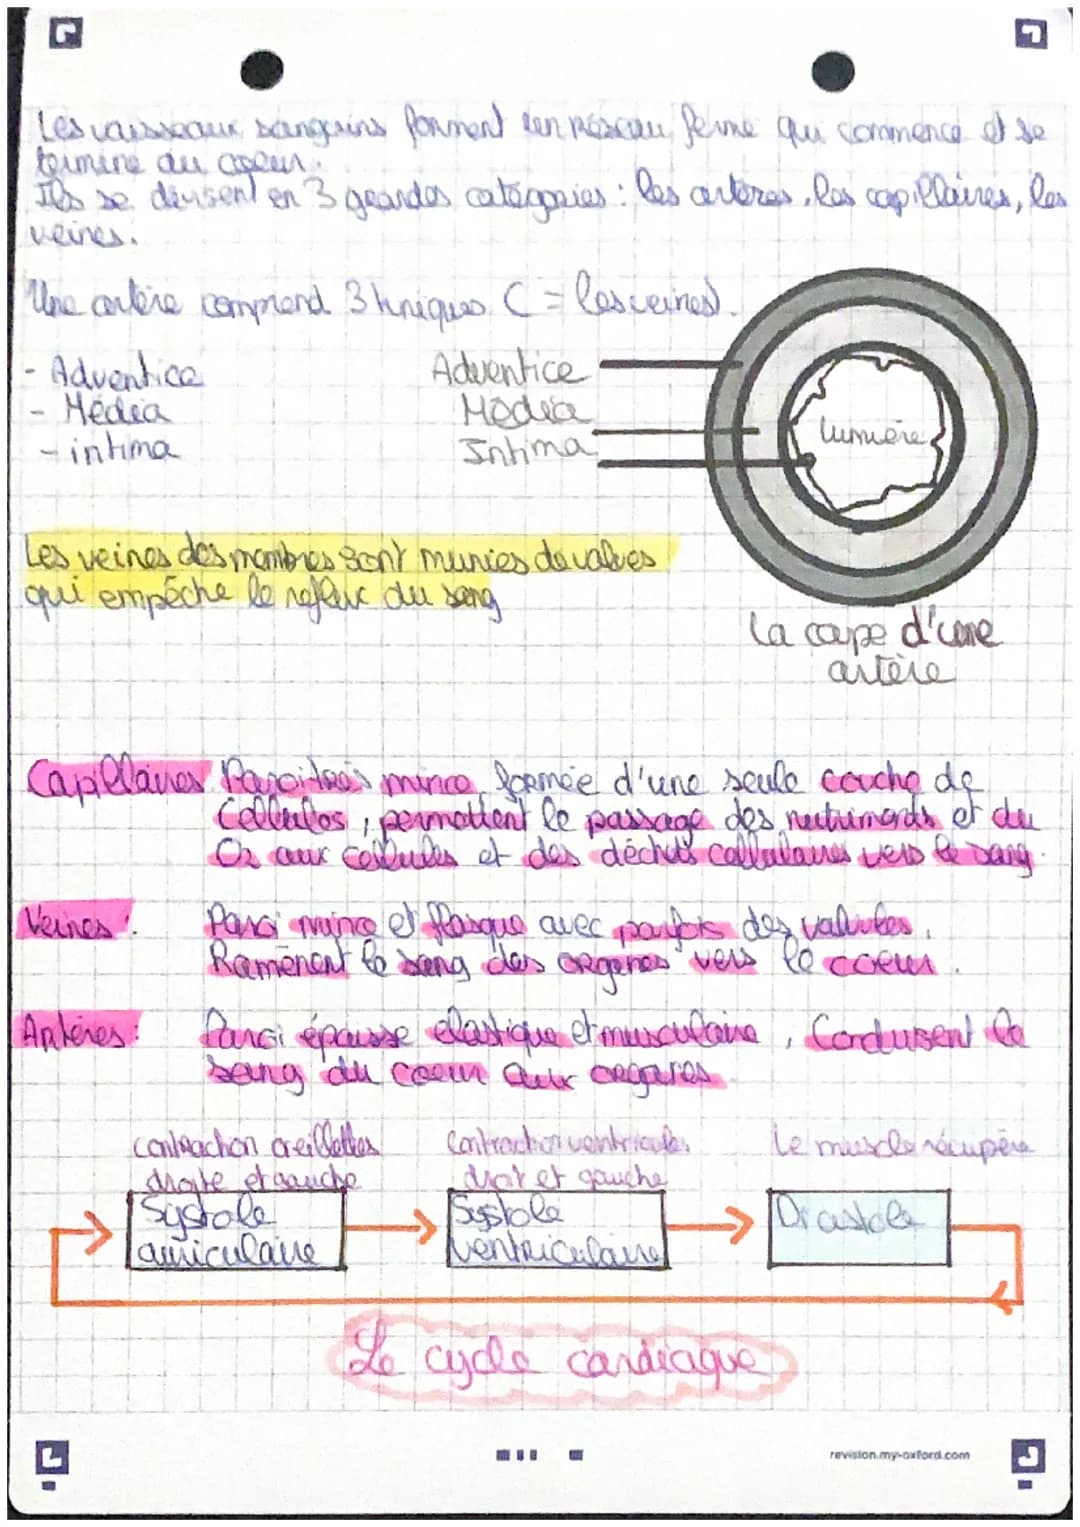 Les vaisseaux sanguins forment un réseau fermé qui commence et se
termine au coeur.
Ils se divisent en 3 grandes catégories : les artères, les capillaires, les
veines.
Une artère comprend 3 tuniques (= les veines).
- Adventice
- Média
- intima
Adventice
Média
Intima
lumière
Les veines des membres sont munies de valves
qui empêche le reflux du sang
La coupe d'une
artère
Capillaires Paroi très mince, formée d'une seule couche de
Cellules, permettent le passage des nutriments et du
O2 aux cellules et des déchets cellulaires vers le sang.
Veines : Paroi mince et flasque avec parfois des valvules.
Ramènent le sang des organes vers le coeur.
Artères : Paroi épaisse élastique et musculaire, Conduisent le
sang du coeur aux organes
contraction oreillettes
droite et gauche
Contraction ventricules
droit et gauche
Le muscle récupère
Systole
auriculaire
Systole
ventriculaire
Diastole
Le cycle cardiaque
revision.my-oxford.com